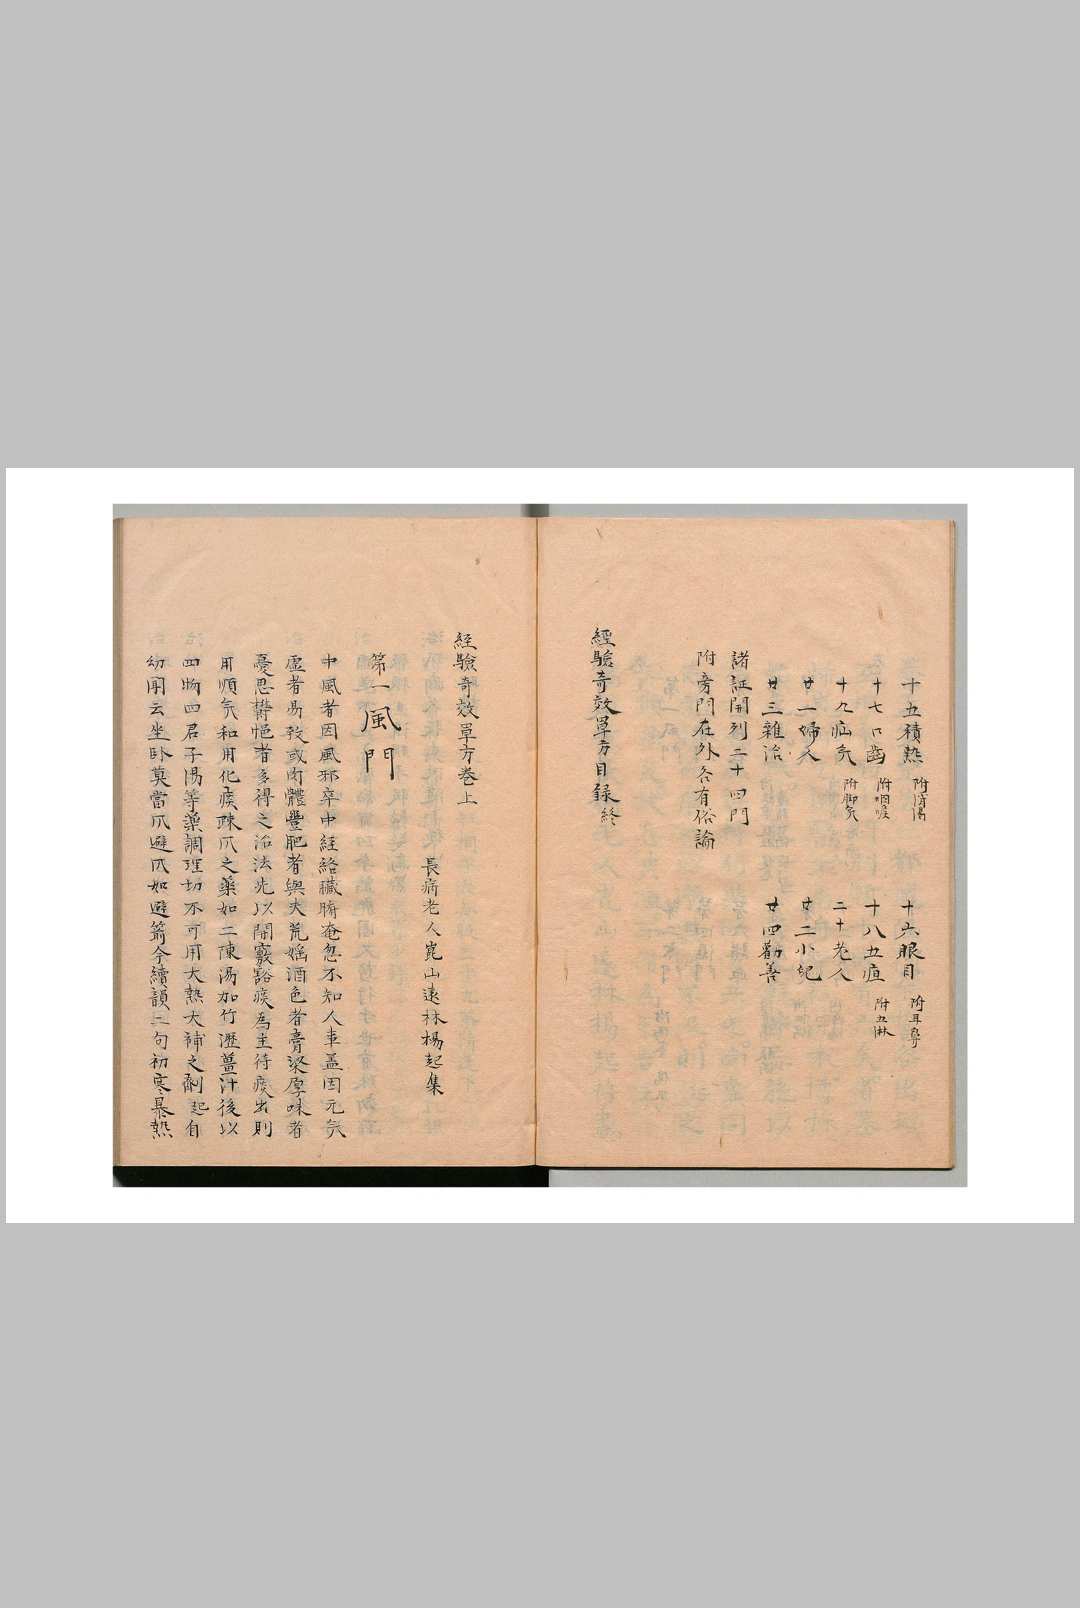 十五積熱 附消渴 十六眼目 附耳鼻
十七口齒 附咽喉 十八五疸 附五淋
十九疝気 附脚気 二十老人
廿一婦人 廿二小兒
廿三雜治 廿四勸善
諸証開列二十四門
附旁門在外各有俗論
經驗奇效單方目錄終
經驗奇效單方卷上
長病老人崑山遠林楊起集
第一風門
中風者因風邪卒中経絡臟腑奄忽不知人事盖因元気
虛者易致或肉體豐肥者與夫荒婬酒色者膏梁厚味者
憂思欝悒者多得之治法先以開竅豁痰為主待痰出則
用順気和用化痰踈风之藥如二陳湯加竹瀝薑汁後以
四物四君子湯等藥調理切不可用大熱大補之劑起自
幼聞云坐卧莫當风避风如避箭今續韻二句初寒暴熱